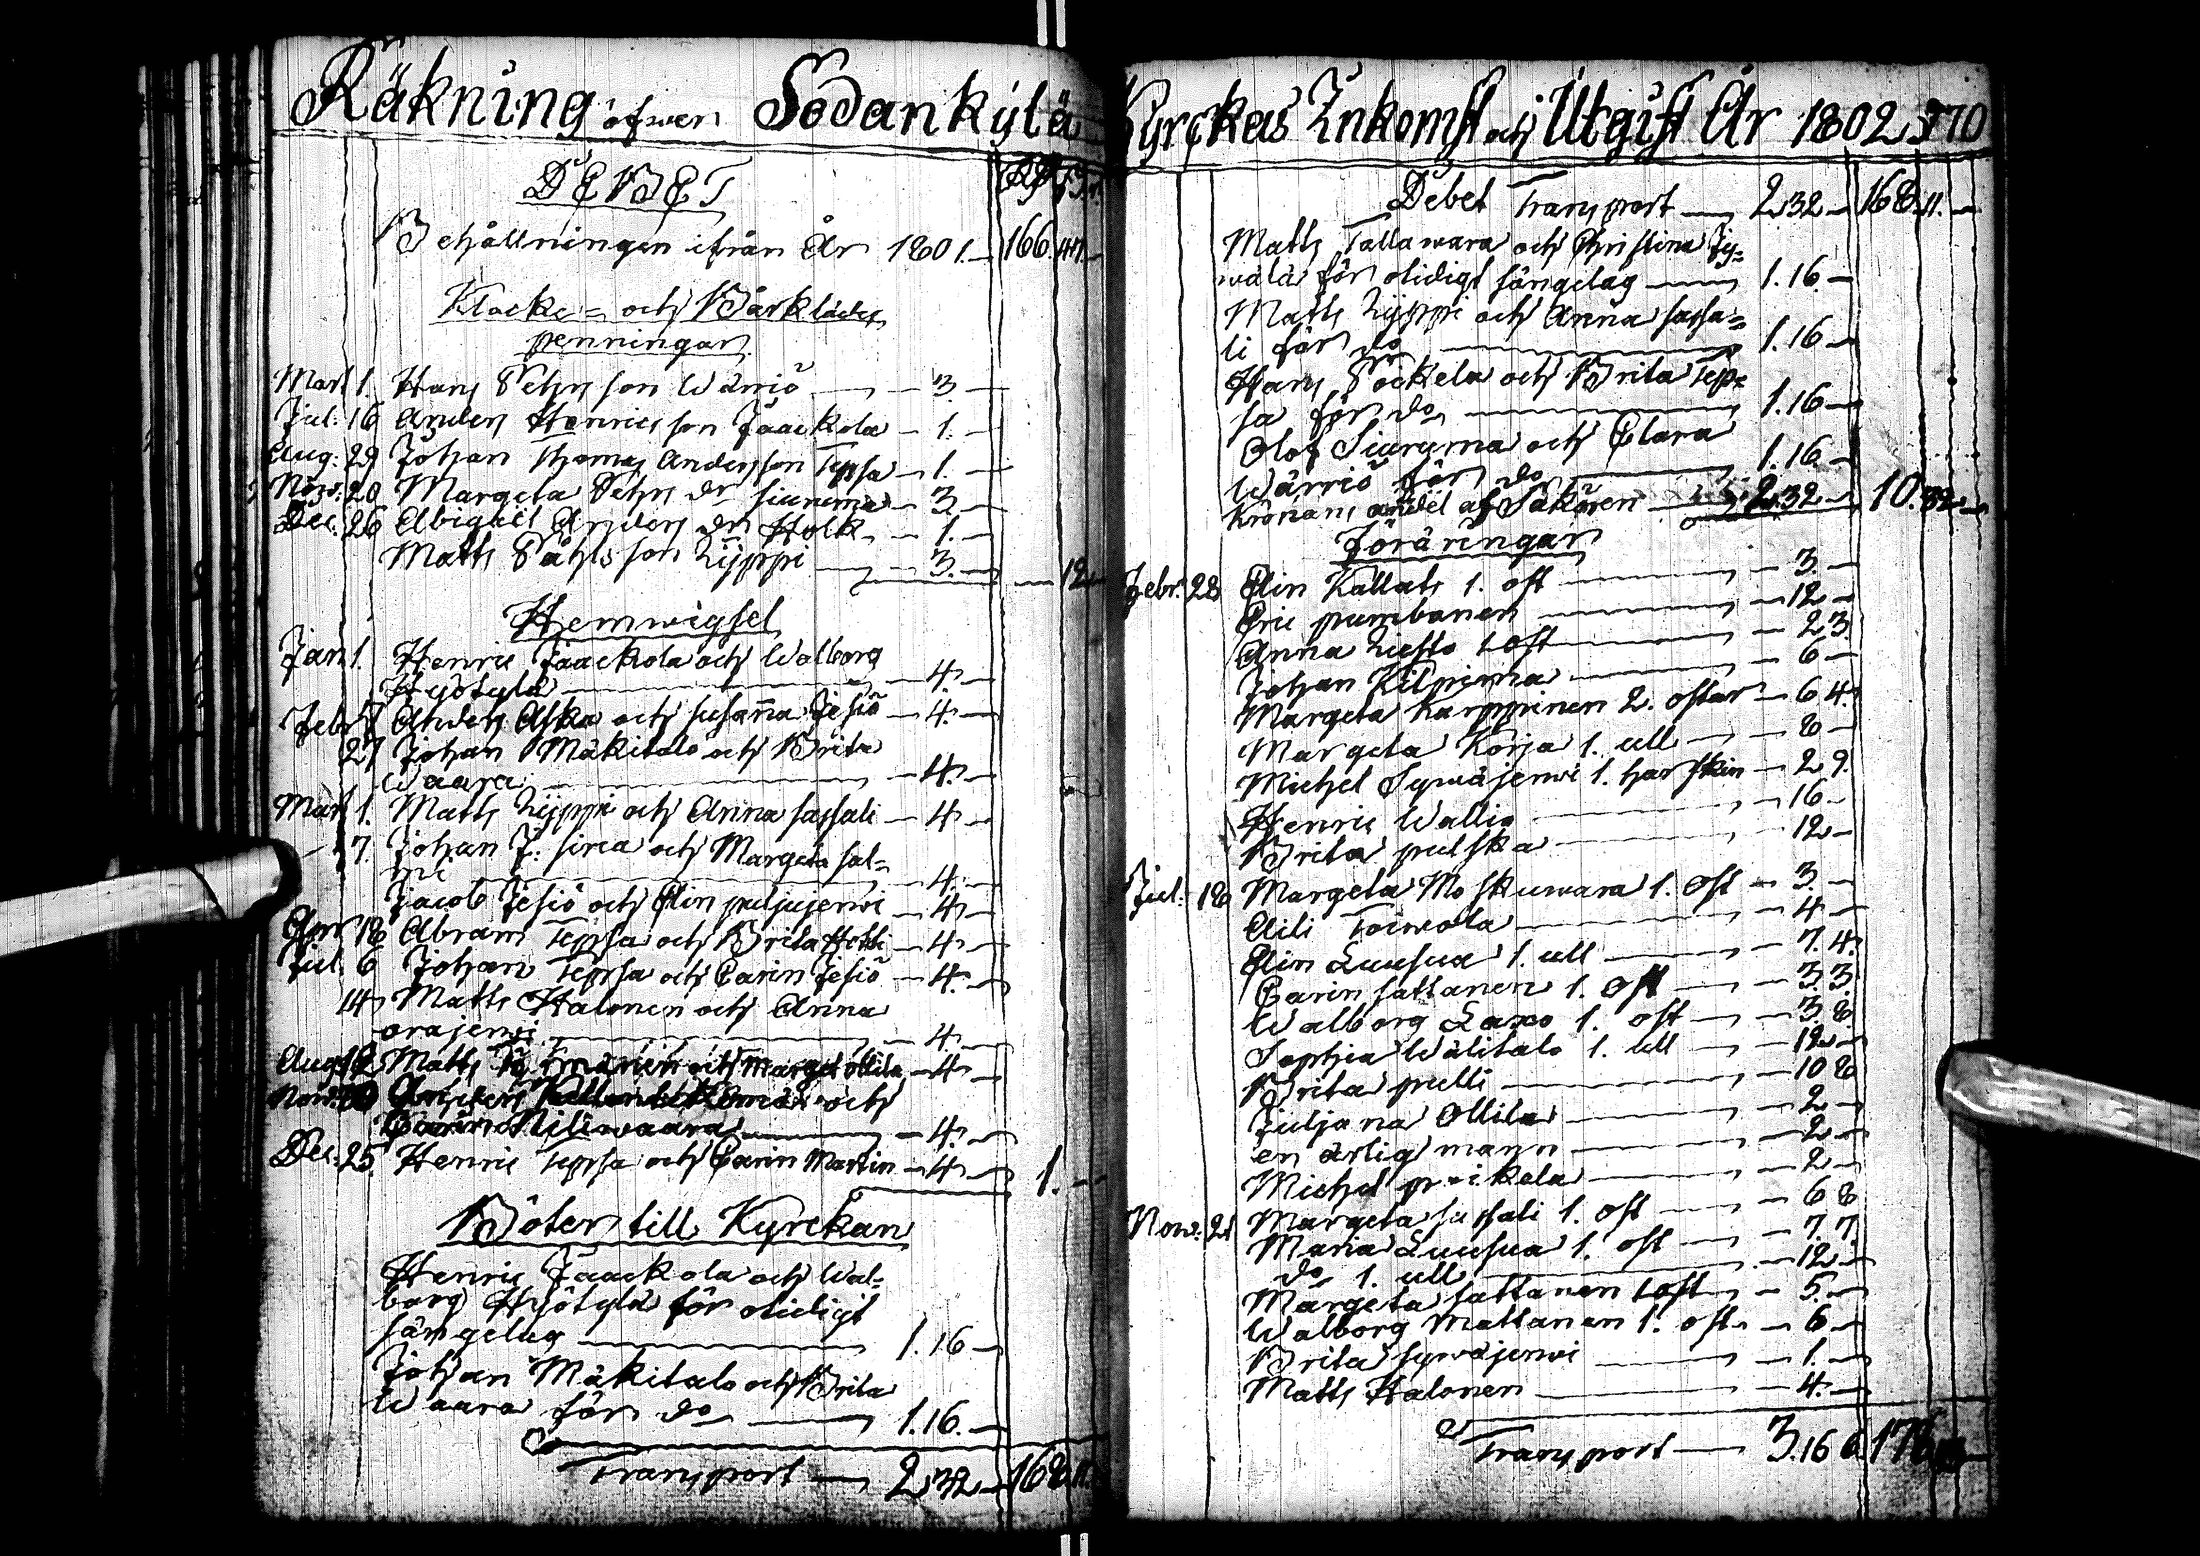 Räkning öfwer Sodankylä
DEBET
Behållningen ifrån År 1801. — 166.47.—
Klocke= och Bårklädes
penningar
Mart 1. Hans Pehrs son Wärriö — 3. —
Jul: 16 Anders Henrics son Jaackola — 1. —
Aug: 29 Johan Thomas Andersson Tepsa — 1. —
Nov: 20 Margeta Pehrs dr siuruma — 3. —
Dec. 26 Abigael Anders dr Holk — 1. —
Matts Påhls son Lyppi — 3. — 12
Hemwigsel
Jan 1. Henric Jaackola och Walborg
Hyötylä — 4. —
Febr 7 Anders Aska och susanna Jesiö — 4. —
27 Johan Mäkitalo och Brita
Waara — 4. —
Mart 1. Matts Lyppi och Anna sassali — 4. —
7. Johan J: sirea och Margeta sal=
mi — 4. —
Jacob Jesiö och Elin puljujerwi — 4. —
Apr 18 Abram Tepsa och Brita Hotti — 4. —
Jul. 6 Johan Tepsa och Carin Jesiö — 4. —
14 Matts Halonen och Anna
orajerwi — 4. —
Aug 18 Matts och Marget ollila — 4. —
Nov. Anders och
Carin Niliwaara — 4. —
Dec. 25. Henric Tepsa och Carin Martin — 4. — 1. —
Böter till Kyrckan
Henric Jaackola och Wal=
borg Hyötylä för otidigt
sängelag — 1.16 —
Johan Mäkitalo och Brita
Waara för do — 1.16. —
Transport — 2.32 — 168.11.
Kyrckas Inkomst och Utgift År 1802. 370
Debet Transport — 2.32 — 168.11. —
Matts Tallawara och Christina Jy=
wälä för otidigt sängelag — 1.16. —
Matts Lyppi och Anna sassa=
li för do — 1.16 —
Hans Pockela och Brita Tep=
sa för do — 1.16 —
Olof Siuruma och Clara
Wärriö för do — 1.16 —
Kronans andel af Sakören — 2.32 — 10.32 —
Föräringar
Febr. 28 Elin Kallats 1. ost — 3. —
Eric pumbanen — 12 —
Anna Liesto 1 ost — 2 3.
Johan Kilpirma — 6 —
Margeta Karppinen 2. ostar — 6 4.
Margeta Korja 1. ull — 8 —
Michel Sywäjerwi 1. harskin — 2 9.
Henric Wallig — 16 —
Brita pulska — 12 —
Jul: 18 Margeta Moskuwara 1. Ost — 3. —
Aili Toiwola — 4 —
Elin Luusua 1. ull — 7. 4.
Carin sattanen 1. Ost — 3. 3.
Walborg Laxo 1. ost — 3 8.
Sophia Wälitalo 1. Ull — 12 —
Brita pulli — 10 8
Juljana Ollila — 2 —
en ärlig mann — 2 —
Michel peikela — 2 —
Nov. 21 Margeta sassali 1. ost — 6 8
Maria Luusua 1. ost — 7. 7.
do 1. ull — 12 —
Margeta sattanen 1 ost — 5. —
Walborg Mattanen 1. ost — 6 —
Brita sywäjerwi — 1. —
Matts Halonen — 4. —
Transport — 3.16 6